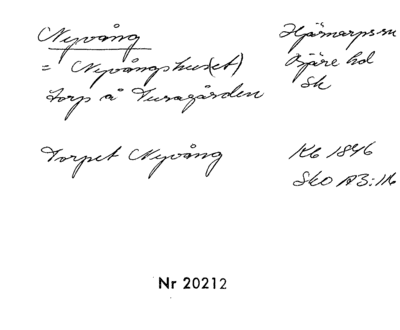 Nyvång Hjärnarps sn
= Nyvångshus(et) Bjäre hd
torp å Turagården Sk
Torpet Nyvång Kb 1846
SkO A3:116
Nr 20212